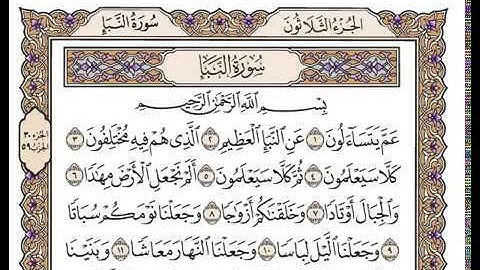 الجُزْءُ الثَّلَاثُونَ
سُورَةُ النَّبَإِ
سُورَةُ النَّبَإِ
بِسْمِ ٱللَّهِ ٱلرَّحْمَٰنِ ٱلرَّحِيمِ
عَمَّ يَتَسَآءَلُونَ ١ عَنِ ٱلنَّبَإِ ٱلْعَظِيمِ ٢ ٱلَّذِى هُمْ فِيهِ مُخْتَلِفُونَ ٣
كَلَّا سَيَعْلَمُونَ ٤ ثُمَّ كَلَّا سَيَعْلَمُونَ ٥ أَلَمْ نَجْعَلِ ٱلْأَرْضَ مِهَٰدًا ٦
وَٱلْجِبَالَ أَوْتَادًا ٧ وَخَلَقْنَٰكُمْ أَزْوَٰجًا ٨ وَجَعَلْنَا نَوْمَكُمْ سُبَاتًا
٩ وَجَعَلْنَا ٱلَّيْلَ لِبَاسًا ١٠ وَجَعَلْنَا ٱلنَّهَارَ مَعَاشًا ١١ وَبَنَيْنَا
الجزء ٣٠
الحزب ٥٩